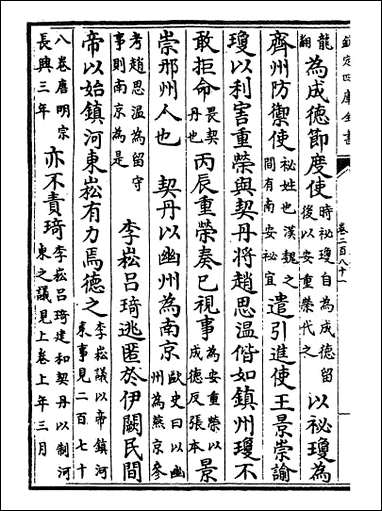 欽定四庫全書
卷二百八十一
龍為成德節度使時祕瓊自為成德留後以安重榮代之以祕瓊為
齊州防禦使祕姓也漢魏之間有南安祕宜遣引進使王景崇諭
瓊以利害重榮與契丹將趙思温偕如鎮州瓊不
敢拒命畏契丹也丙辰重榮奏已視事為安重榮以成德反張本景
崇邢州人也 契丹以幽州為南京歐史曰以幽州為燕京參
考趙思温為留守事則南京為是 李崧吕琦逃匿於伊闕民間
帝以始鎮河東崧有力焉德之李崧議以帝鎮河東事見二百七十
八卷唐明宗長興三年亦不責琦李崧吕琦建和契丹以制河東之議見上卷上年三月